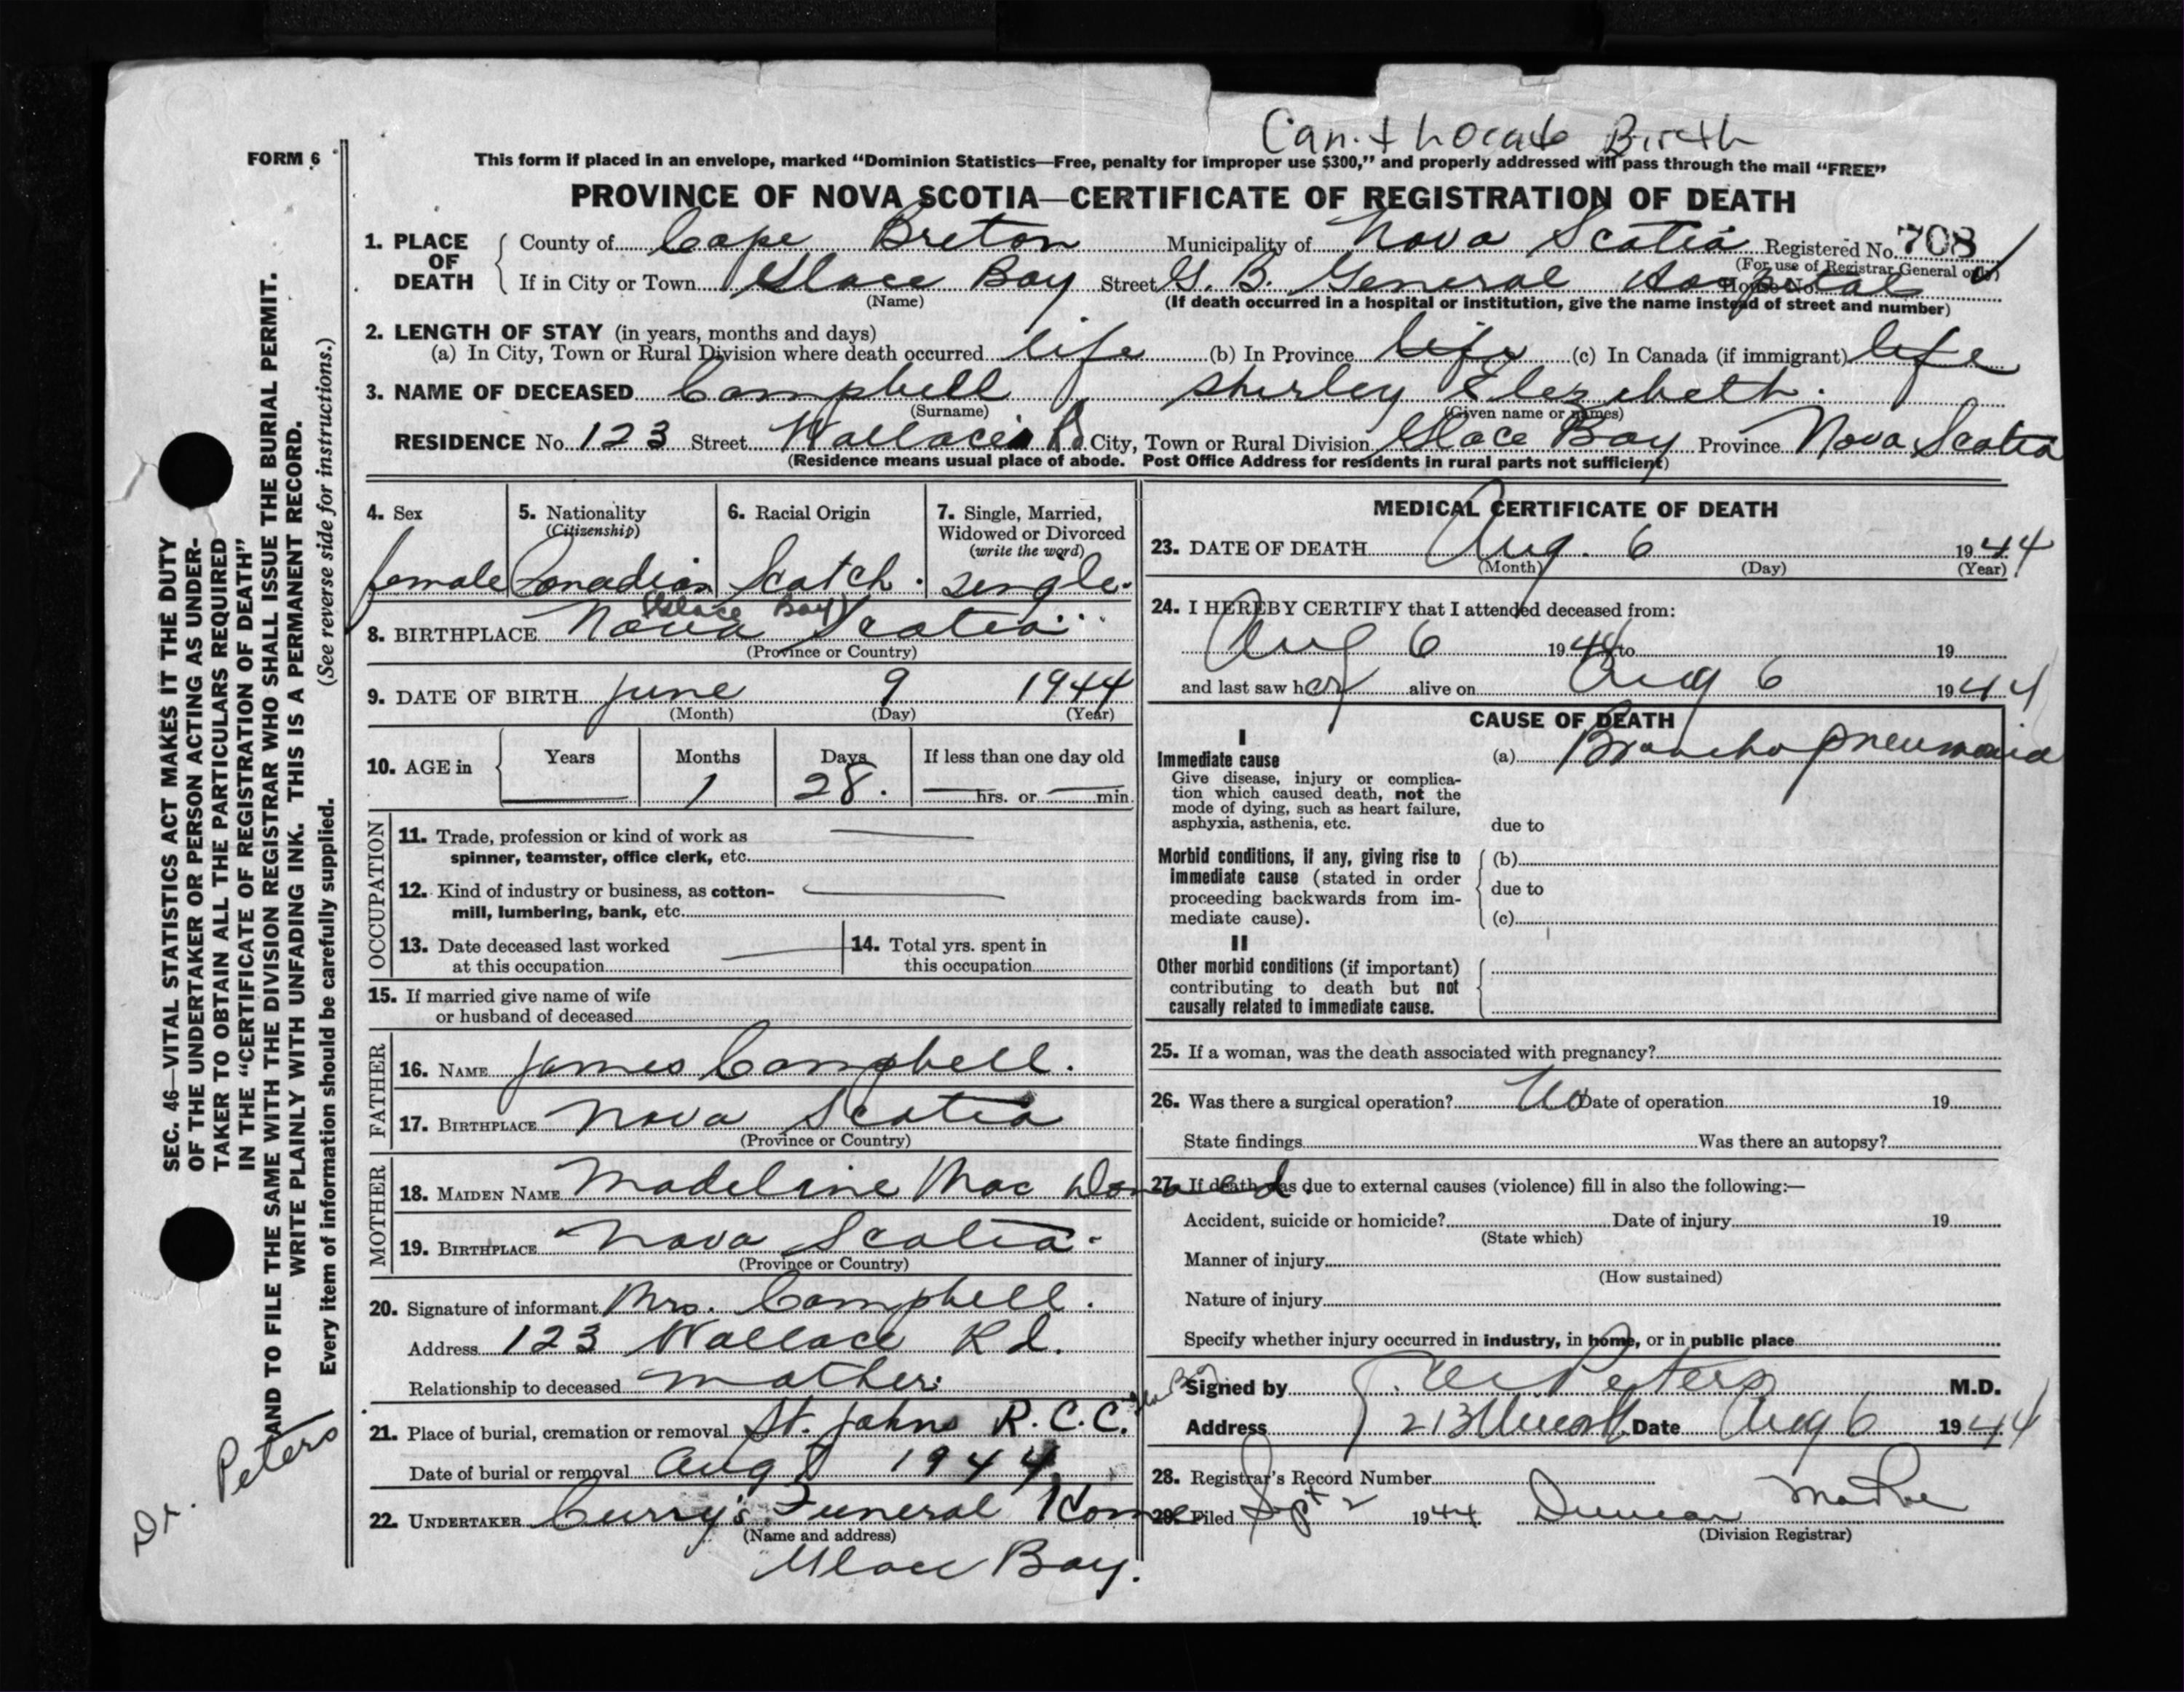 Can't Locate Birth
FORM 6
This form if placed in an envelope, marked "Dominion Statistics—Free, penalty for improper use $300," and properly addressed will pass through the mail "FREE"
PROVINCE OF NOVA SCOTIA—CERTIFICATE OF REGISTRATION OF DEATH
1. PLACE OF DEATH County of Cape Breton Municipality of Nova Scotia Registered No. 708
(For use of Registrar General only)
If in City or Town Glace Bay Street G. B. General Hospital House No.
(Name) (If death occurred in a hospital or institution, give the name instead of street and number)
2. LENGTH OF STAY (in years, months and days)
(a) In City, Town or Rural Division where death occurred life (b) In Province life (c) In Canada (if immigrant) life
3. NAME OF DECEASED Campbell Shirley Elezibeth.
(Surname) (Given name or names)
RESIDENCE No. 123 Street Wallace Rd. City, Town or Rural Division Glace Bay Province Nova Scotia
(Residence means usual place of abode. Post Office Address for residents in rural parts not sufficient)
4. Sex 5. Nationality (Citizenship) 6. Racial Origin 7. Single, Married, Widowed or Divorced (write the word)
female Canadian Scotch. single.
(Glace Bay)
8. BIRTHPLACE Nova Scotia
(Province or Country)
9. DATE OF BIRTH June 9 1944
(Month) (Day) (Year)
10. AGE in Years Months Days If less than one day old
— 1 28. — hrs. or — min.
OCCUPATION
11. Trade, profession or kind of work as
spinner, teamster, office clerk, etc. —
12. Kind of industry or business, as cotton-
mill, lumbering, bank, etc. —
13. Date deceased last worked
at this occupation —
14. Total yrs. spent in
this occupation
15. If married give name of wife
or husband of deceased
FATHER
16. NAME James Campbell.
17. BIRTHPLACE Nova Scotia
(Province or Country)
MOTHER
18. MAIDEN NAME Madeline Mac Donald.
19. BIRTHPLACE Nova Scotia.
(Province or Country)
20. Signature of informant Mrs. Campbell.
Address 123 Wallace Rd.
Relationship to deceased mother.
21. Place of burial, cremation or removal St. Johns R.C.C.
Date of burial or removal Aug 1944
22. UNDERTAKER Curry's Funeral Home
(Name and address)
Glace Bay.
MEDICAL CERTIFICATE OF DEATH
23. DATE OF DEATH Aug. 6 1944
(Month) (Day) (Year)
24. I HEREBY CERTIFY that I attended deceased from:
Aug 6 1944 to 19
and last saw her alive on Aug 6 1944
CAUSE OF DEATH
I
Immediate cause (a) Bronchopneumonia
Give disease, injury or complica-
tion which caused death, not the
mode of dying, such as heart failure,
asphyxia, asthenia, etc.
due to
Morbid conditions, if any, giving rise to (b)
immediate cause (stated in order
due to
proceeding backwards from im-
mediate cause). (c)
II
Other morbid conditions (if important)
contributing to death but not
causally related to immediate cause.
25. If a woman, was the death associated with pregnancy?
26. Was there a surgical operation? No Date of operation 19
State findings Was there an autopsy?
27. If death was due to external causes (violence) fill in also the following:—
Accident, suicide or homicide? Date of injury 19
(State which)
Manner of injury
(How sustained)
Nature of injury
Specify whether injury occurred in industry, in home, or in public place
Signed by Peters M.D.
Address Date Aug 6 1944
28. Registrar's Record Number
29. Filed Sept 2 1944 Duncan MacRae
(Division Registrar)
SEC. 46—VITAL STATISTICS ACT MAKES IT THE DUTY
OF THE UNDERTAKER OR PERSON ACTING AS UNDER-
TAKER TO OBTAIN ALL THE PARTICULARS REQUIRED
IN THE "CERTIFICATE OF REGISTRATION OF DEATH"
AND TO FILE THE SAME WITH THE DIVISION REGISTRAR WHO SHALL ISSUE THE BURIAL PERMIT.
WRITE PLAINLY WITH UNFADING INK. THIS IS A PERMANENT RECORD.
Every item of information should be carefully supplied. (See reverse side for instructions.)
Dr. Peters